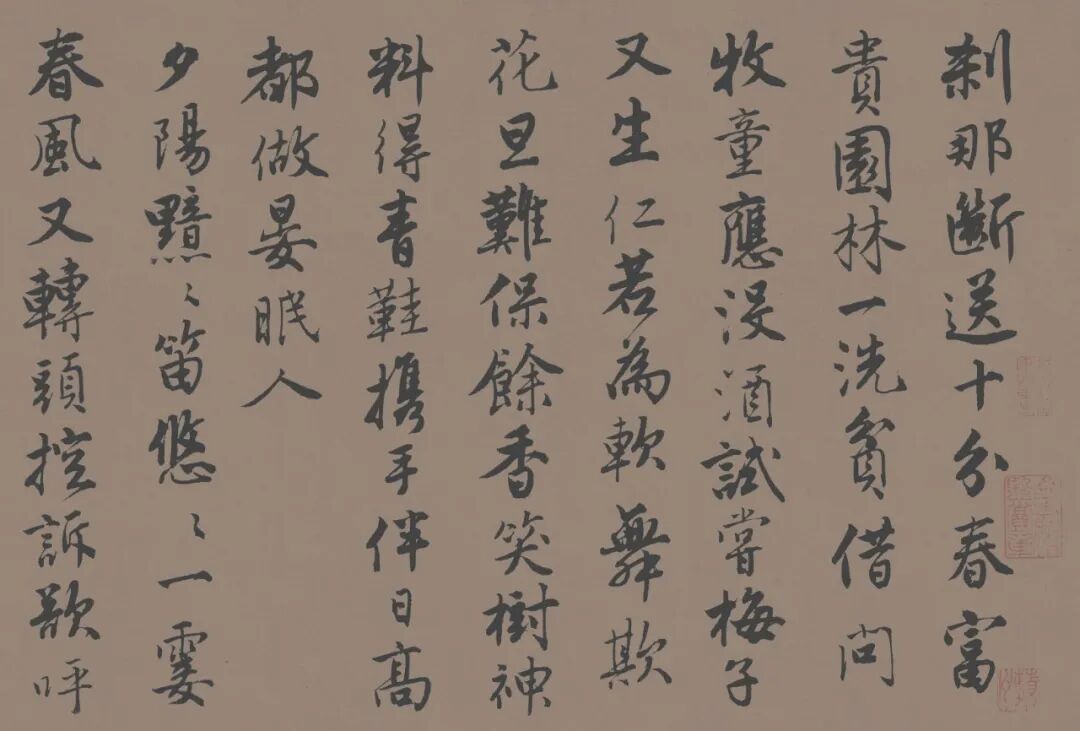 刹那斷送十分春富
貴園林一洗貧借問
牧童應沒酒試嘗梅子
又生仁若為軟舞欺
花旦難保餘香笑樹神
料得青鞋攜手伴日高
都做晏眠人
夕陽黯〻笛悠〻一霎
春風又轉頭控訴欲呼